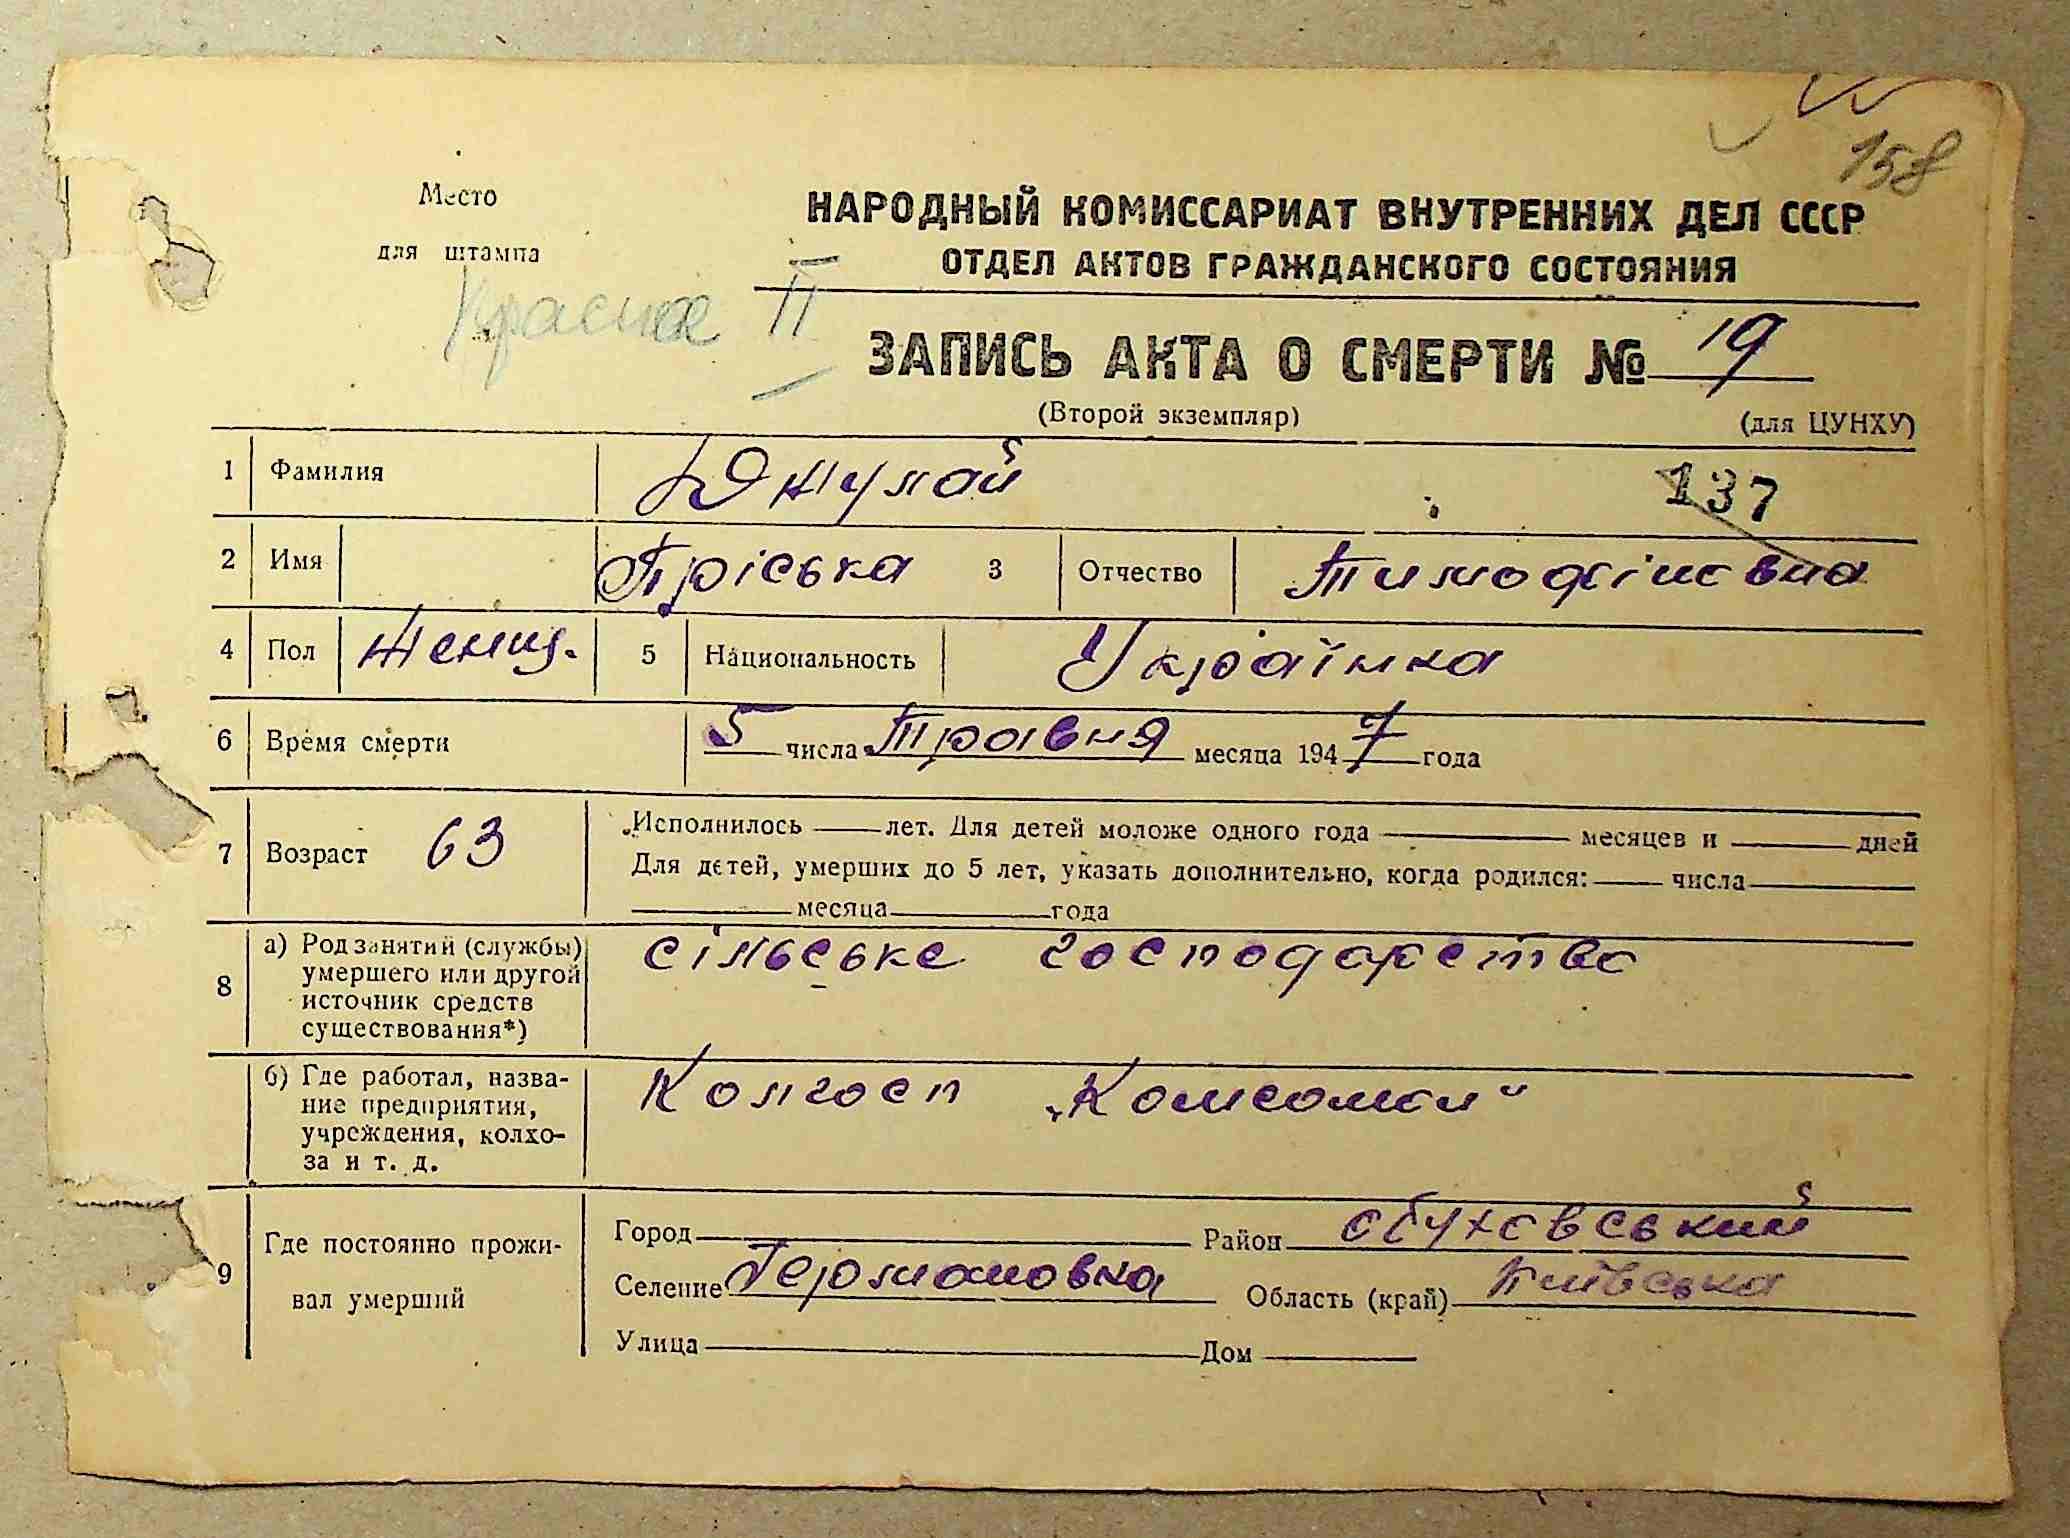 158
Место
для штампа
НАРОДНЫЙ КОМИССАРИАТ ВНУТРЕННИХ ДЕЛ СССР
ОТДЕЛ АКТОВ ГРАЖДАНСКОГО СОСТОЯНИЯ
Красне II
ЗАПИСЬ АКТА О СМЕРТИ № 19
(Второй экземпляр) (для ЦУНХУ)
1 Фамилия 137
2 Имя Пріська 3 Отчество Тимофіївна
4 Пол Женщ. 5 Национальность Українка
6 Время смерти 5 числа Травня месяца 1947 года
7 Возраст 63 Исполнилось лет. Для детей моложе одного года месяцев и дней
Для детей, умерших до 5 лет, указать дополнительно, когда родился: числа
месяца года
8 а) Род занятий (службы) умершего или другой источник средств существования*) сільське господарство
б) Где работал, название предприятия, учреждения, колхоза и т. д. Колгосп „Комсомол"
9 Где постоянно проживал умерший
Город Район Обуховський
Селение Германовка Область (край) Київська
Улица Дом